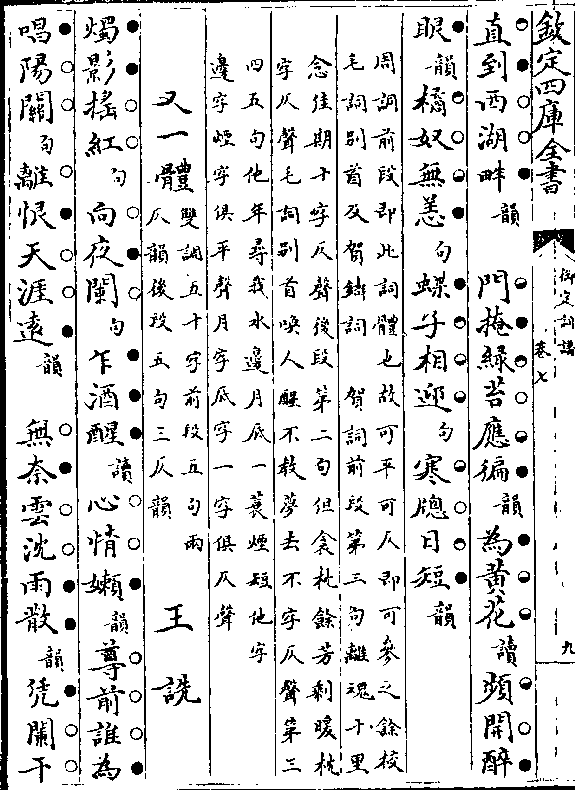 欽定四庫全書
御定詞譜
卷七
九
直到西湖畔韻 門掩緑苔應徧韻為黃花讀頻開醉
眼韻橘奴無恙句蝶子相迎句寒牕日短韻
周詞前段即此詞體也故可平可仄即可參之餘校
毛詞別首及賀鑄詞 賀詞前段第三句離魂十里
念佳期十字仄聲後段第二句但衾枕餘芳剩暖枕
字仄聲毛詞別首喚人醒不教夢去不字仄聲第三
四五句他年尋我水邊月底一蓑煙短他字
邊字煙字俱平聲月字底字一字俱仄聲
又一體
雙調五十字前段五句兩
仄韻後段五句三仄韻
王詵
燭影搖紅句向夜闌句乍酒醒讀心情嬾韻尊前誰為
唱陽關句離恨天涯遠韻 無奈雲沈雨散韻凭闌干